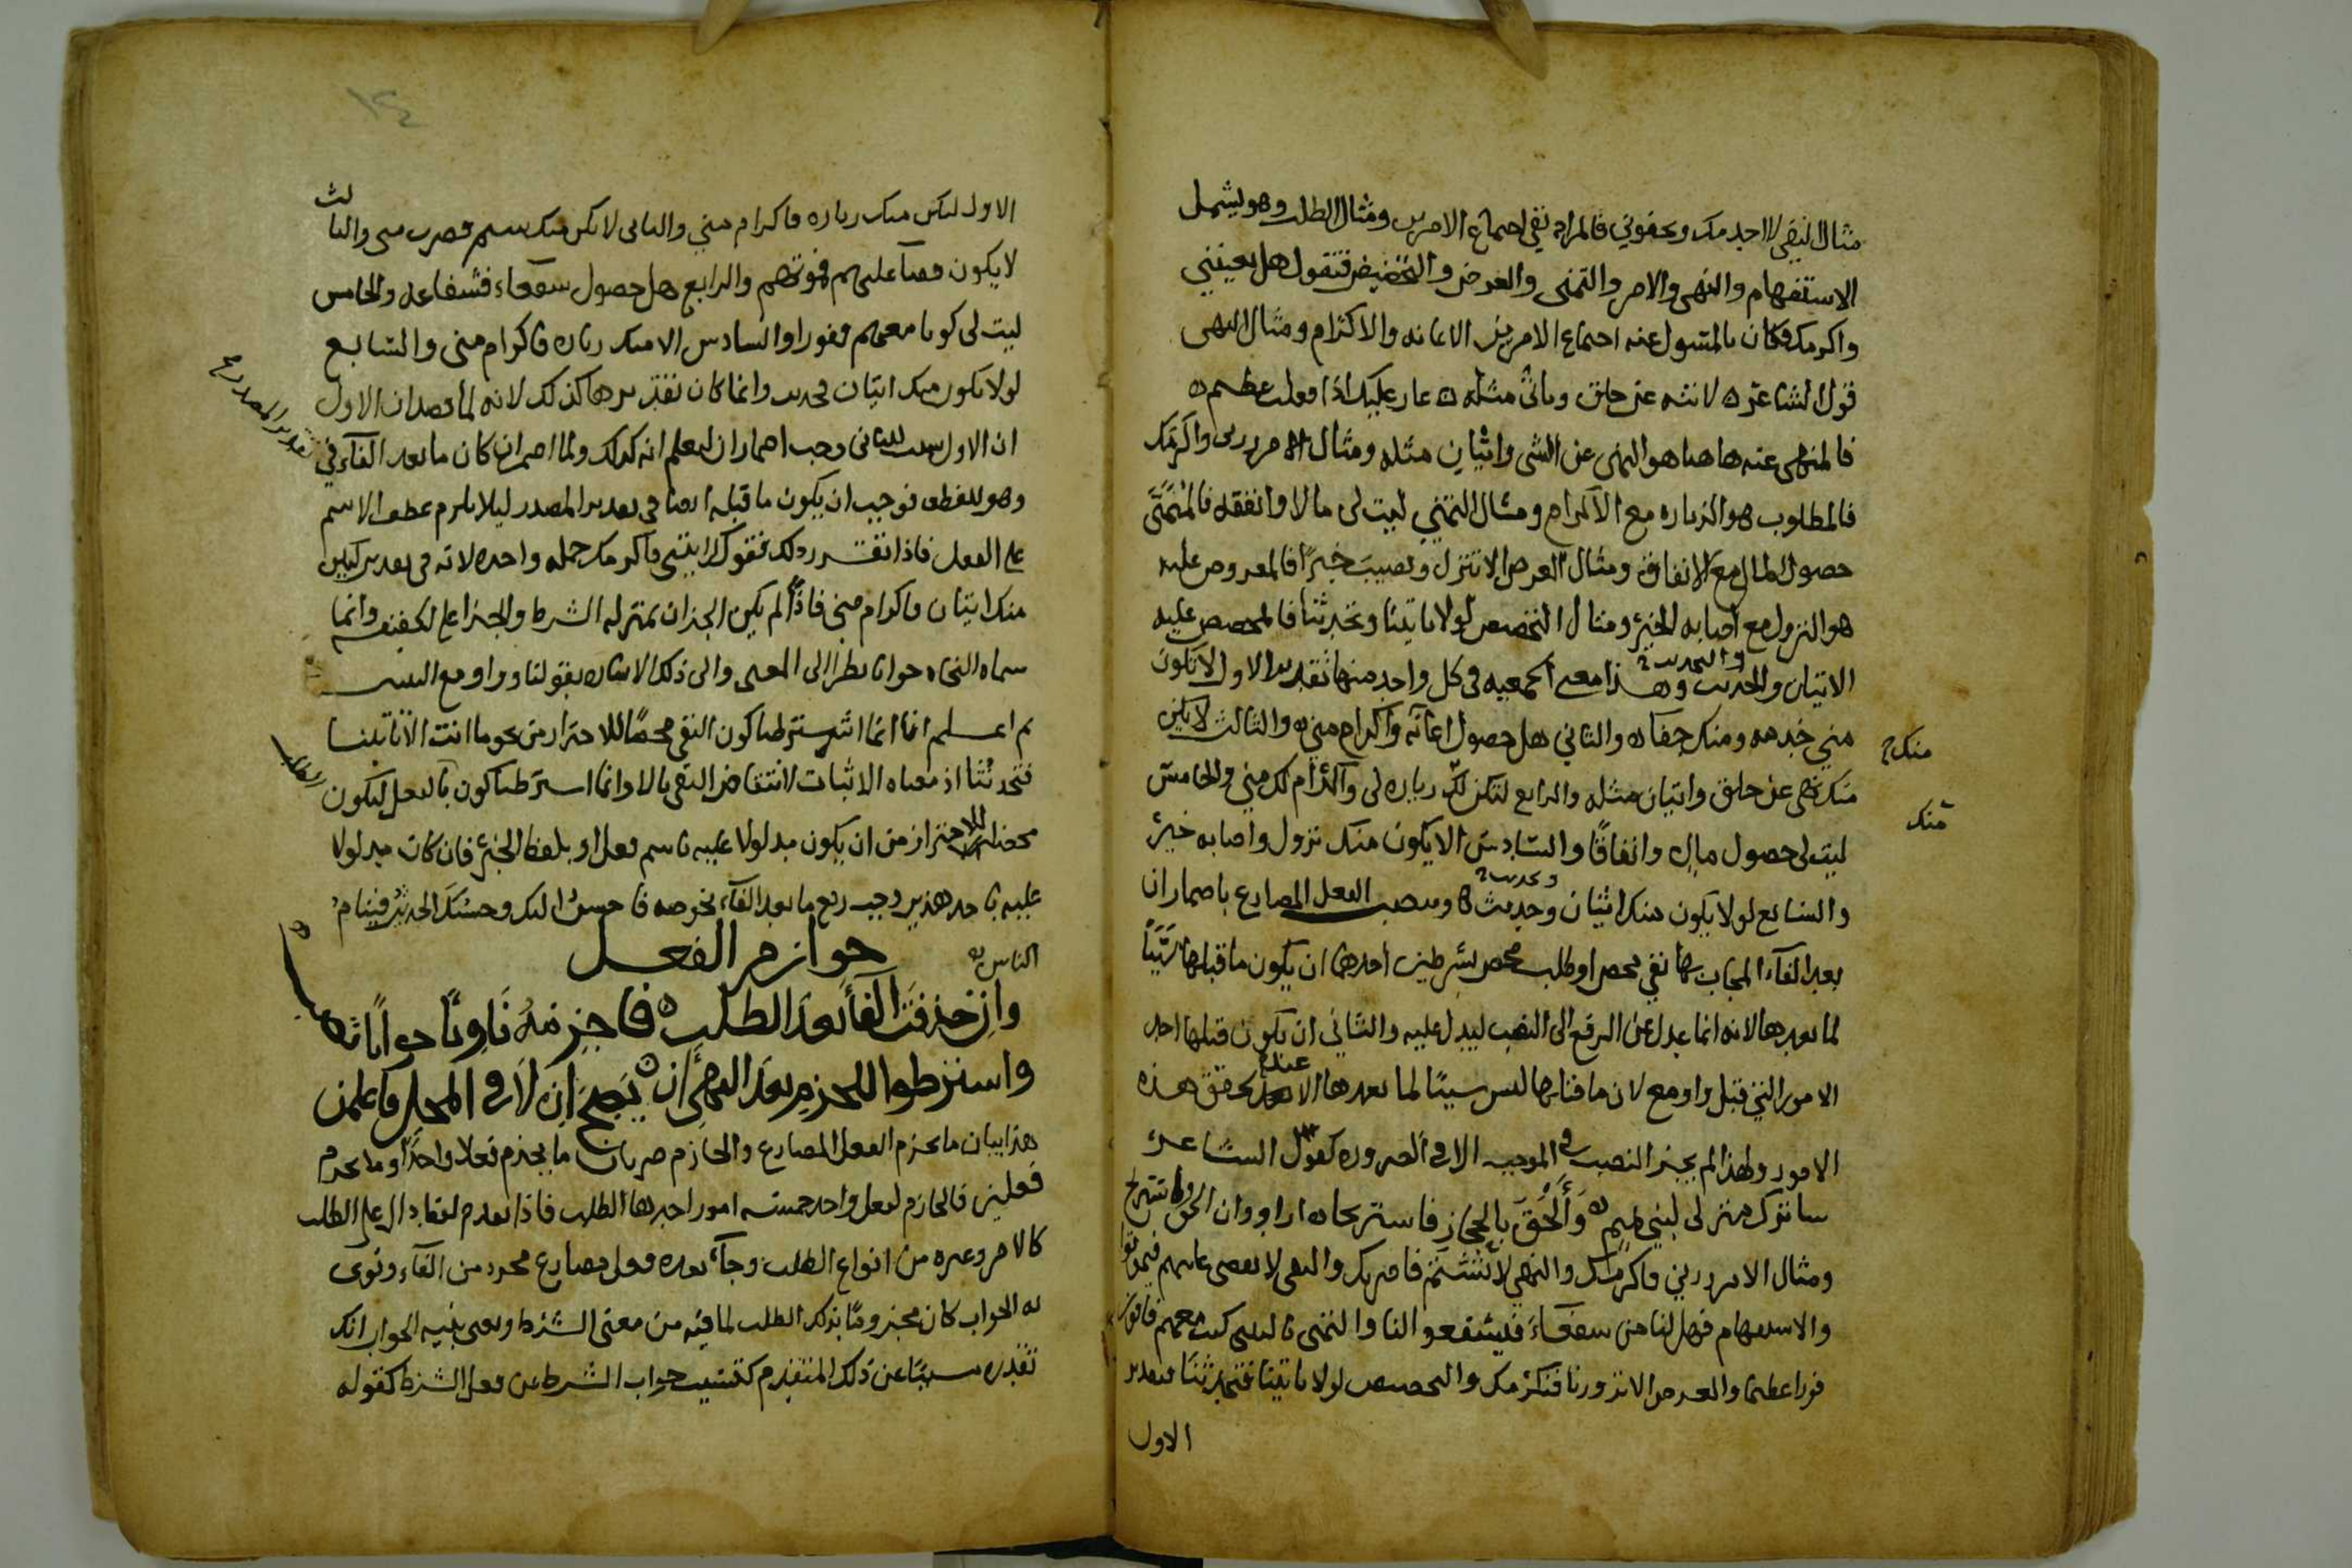 مثال النفى لا اجد منك وتجفونى فالمراد نفى اجتماع الامرين ومثال الطلب وهو يشمل
الاستفهام والنهى والامر والتمنى والعرض والتخضيض فتقول هل يعينني
واكرمك فكان المسول عنه اجتماع الامرين الاعانه والاكرام ومثال النهى
قول الشاعر ه لا تنه عن خلق وتاتى مثله ه عار عليك اذا فعلت عظيم ه
فالمنهى عنه هاهنا هو النهى عن الشى واتيان مثله ومثال الامر زرنى واكرمك
فالمطلوب هو الزياره مع الاكرام ومثال التمني ليت لى مالا وانفقه فالمتمنى
حصول المال مع الانفاق ومثال العرض الا تنزل وتصيب خيرًا فالمعروض عليه
هو النزول مع اصابه الخير ومثال التحضيض لولا تاتينا وتحدثنا فالمحضض عليه
والتحديث
الاتيان والحديث وهذا معنى الجمعيه فى كل واحد منها تقدير الاول لا تكون
مني خدمه ومنك جفاه والثاني هل حصول اعانه واكرام مني ه والثالث لا يكن
منك
منك نهى عن خلق واتيان مثله والرابع لتكن لك زياره لى واكرام لك مني والخامس
منك
ليت لى حصول مال وانفاقا والسادس الا يكون منك نزول واصابه خير
وتحديث
والسابع لولا يكون منك اتيان وحديث ه وينصب الفعل المضارع باضمار ان
بعد الفاء المجاب بها نفي محض او طلب محض بشرطين احدهما ان يكون ما قبلها سببًا
لما بعدها لانه انما عدل عن الرفع الى النصب ليدل عليه والثاني ان يكون قبلها احد
الامور التي قبل واو مع لان ما قبلها ليس سببًا لما بعدها الا عند تحقق هذه
الامور ولهذا لم يجز النصب فى الموجب الا فى الضروره كقول الشاعر
ساترك منزلى لبني تميم ه وألحق بالحجاز فاستريحا ه
ومثال الامر زرني فاكرمك والنهي لا تشتم فاضربك والنفى لا يقضى عليهم فيموتوا
والاستفهام فهل لنا من شفعاء فيشفعوا لنا والتمنى يا ليتنى كنت معهم فافوز
فوزا عظيما والعرض الا تزورنا فنكرمك والتحضيض لولا تاتينا فتحدثنا فتقدير
الاول
الاول ليكن منك زياره فاكرام مني والثانى لا يكن منك شتم فضرب منى والثالث
لا يكون قضآ عليهم فموتهم والرابع هل حصول شفعاء فشفاعه والخامس
ليت لى كونا معهم ففوزا والسادس الا منك زياره فاكرام منى والسابع
لولا يكون منك اتيان فحديث وانما كان تقديرها كذلك لانه لما قصد ان الاول
ان الاول سبب للثانى وجب اضمار ان ليعلم انه كذلك ولما اضمر ان كان ما بعد الفآء في
تقدير المصدر
وهو للعطف فوجب ان يكون ما قبله ايضا فى تقدير المصدر ليلا يلزم عطف الاسم
على الفعل فاذا تقرر ذلك فقولك ايتنى فاكرمك جمله واحده لانه فى تقدير ليكن
منك اتيان فاكرام مني فاذًا لم يكن الجزان بمنزله الشرط والجزا على الحقيقه وانما
سماه النحاه جوابا نظرا الى المعنى والى ذلك الاشاره بقولنا وواو مع
ثم اعلم انا انما اشترطنا كون النفى محضًا للاحتراز من نحو ما انت الا تاتينا
فتحدثنا اذ معناه الاثبات لانتقاض النفى بالا وانما اشترطنا كون بالفعل ليكون
الطلب
محضا للاحتراز من ان يكون مدلولا عليه باسم فعل او بلفظ الخبر فان كان مدلولا
عليه باحد هذين وجب رفع ما بعد الفآء نحو صه فاحسن اليك وحسبك الحديث فينام
الناس ه
جوازم الفعل
وان حذفت الفآ بعد الطلب ه فاجزمه ناويًا جوابًا
واشترطوا للجزم بعد النهى ان ه يصح ان لا فى المحل فاعلمن
هذا بيان ما يجزم الفعل المضارع والجازم ضربان ما يجزم فعلا واحدًا وما يجزم
فعلين فالجازم لفعل واحد خمسه امور احدها الطلب فاذا تقدم لفظ دال على الطلب
كالامر وغيره من انواع الطلب وجآء بعده فعل مضارع مجرد من الفآء ونوى
به الجواب كان مجزومًا بذلك الطلب لما فيه من معنى الشرط ونعنى بنيه الجواب انك
تقدره مسببًا عن ذلك المتقدم كتسبب جواب الشرط عن فعل الشرط كقوله